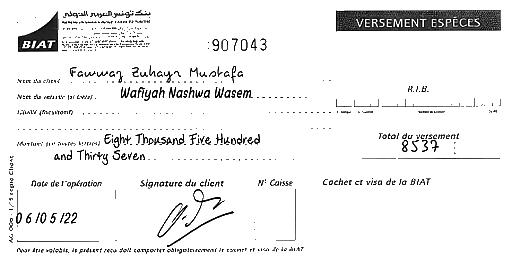 بنك تونس العربي الدولي
BIAT
907043
VERSEMENT ESPÈCES
Nom du client Fawwaz Zuhayr Mustafa
Nom du remettant (si tiers) Wafiyah Nashwa Wasem
R.I.B.
Libellé (facultatif)
Montant (en toutes lettres) Eight Thousand Five Hundred
and Thirty Seven
Total du versement
8537
Date de l'opération
Signature du client
N° Caisse
Cachet et visa de la BIAT
06/05/22
Pour être valable, le présent reçu doit comporter obligatoirement le cachet et visa de la BIAT